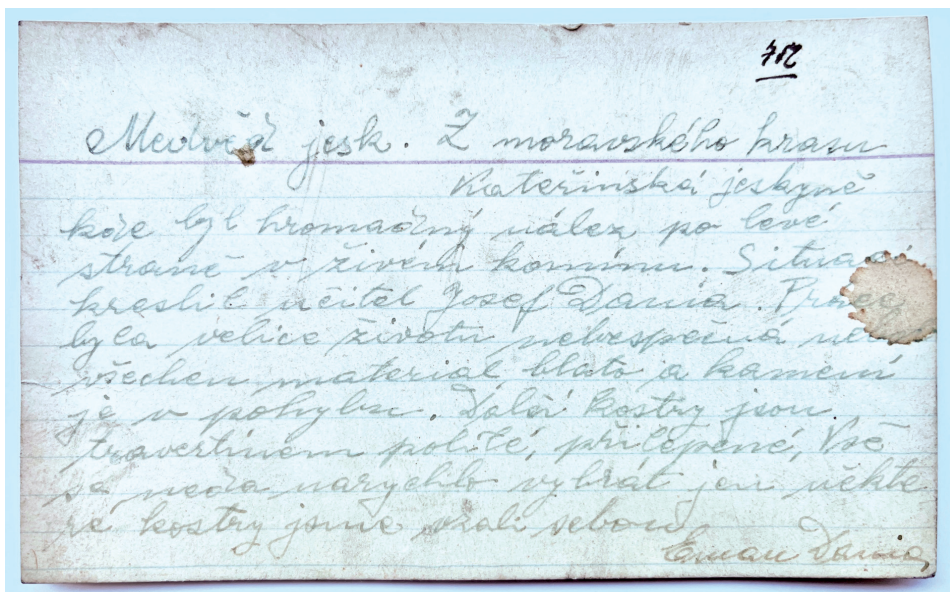 Medvěd jesk. Z moravského krasu
Kateřinská jeskyně
kde byl hromadný nález po levé
straně v živém komínu.
kreslil učitel Josef Dania.
byla velice životu nebezpečná
všechen material bláto a kamení
je v pohybu. Další kostry jsou
travertinem polité, přilepené, Vše
se nedá narychlo vybrat jen někte
ré kostry jsme vzali sebou
Eman Dania,